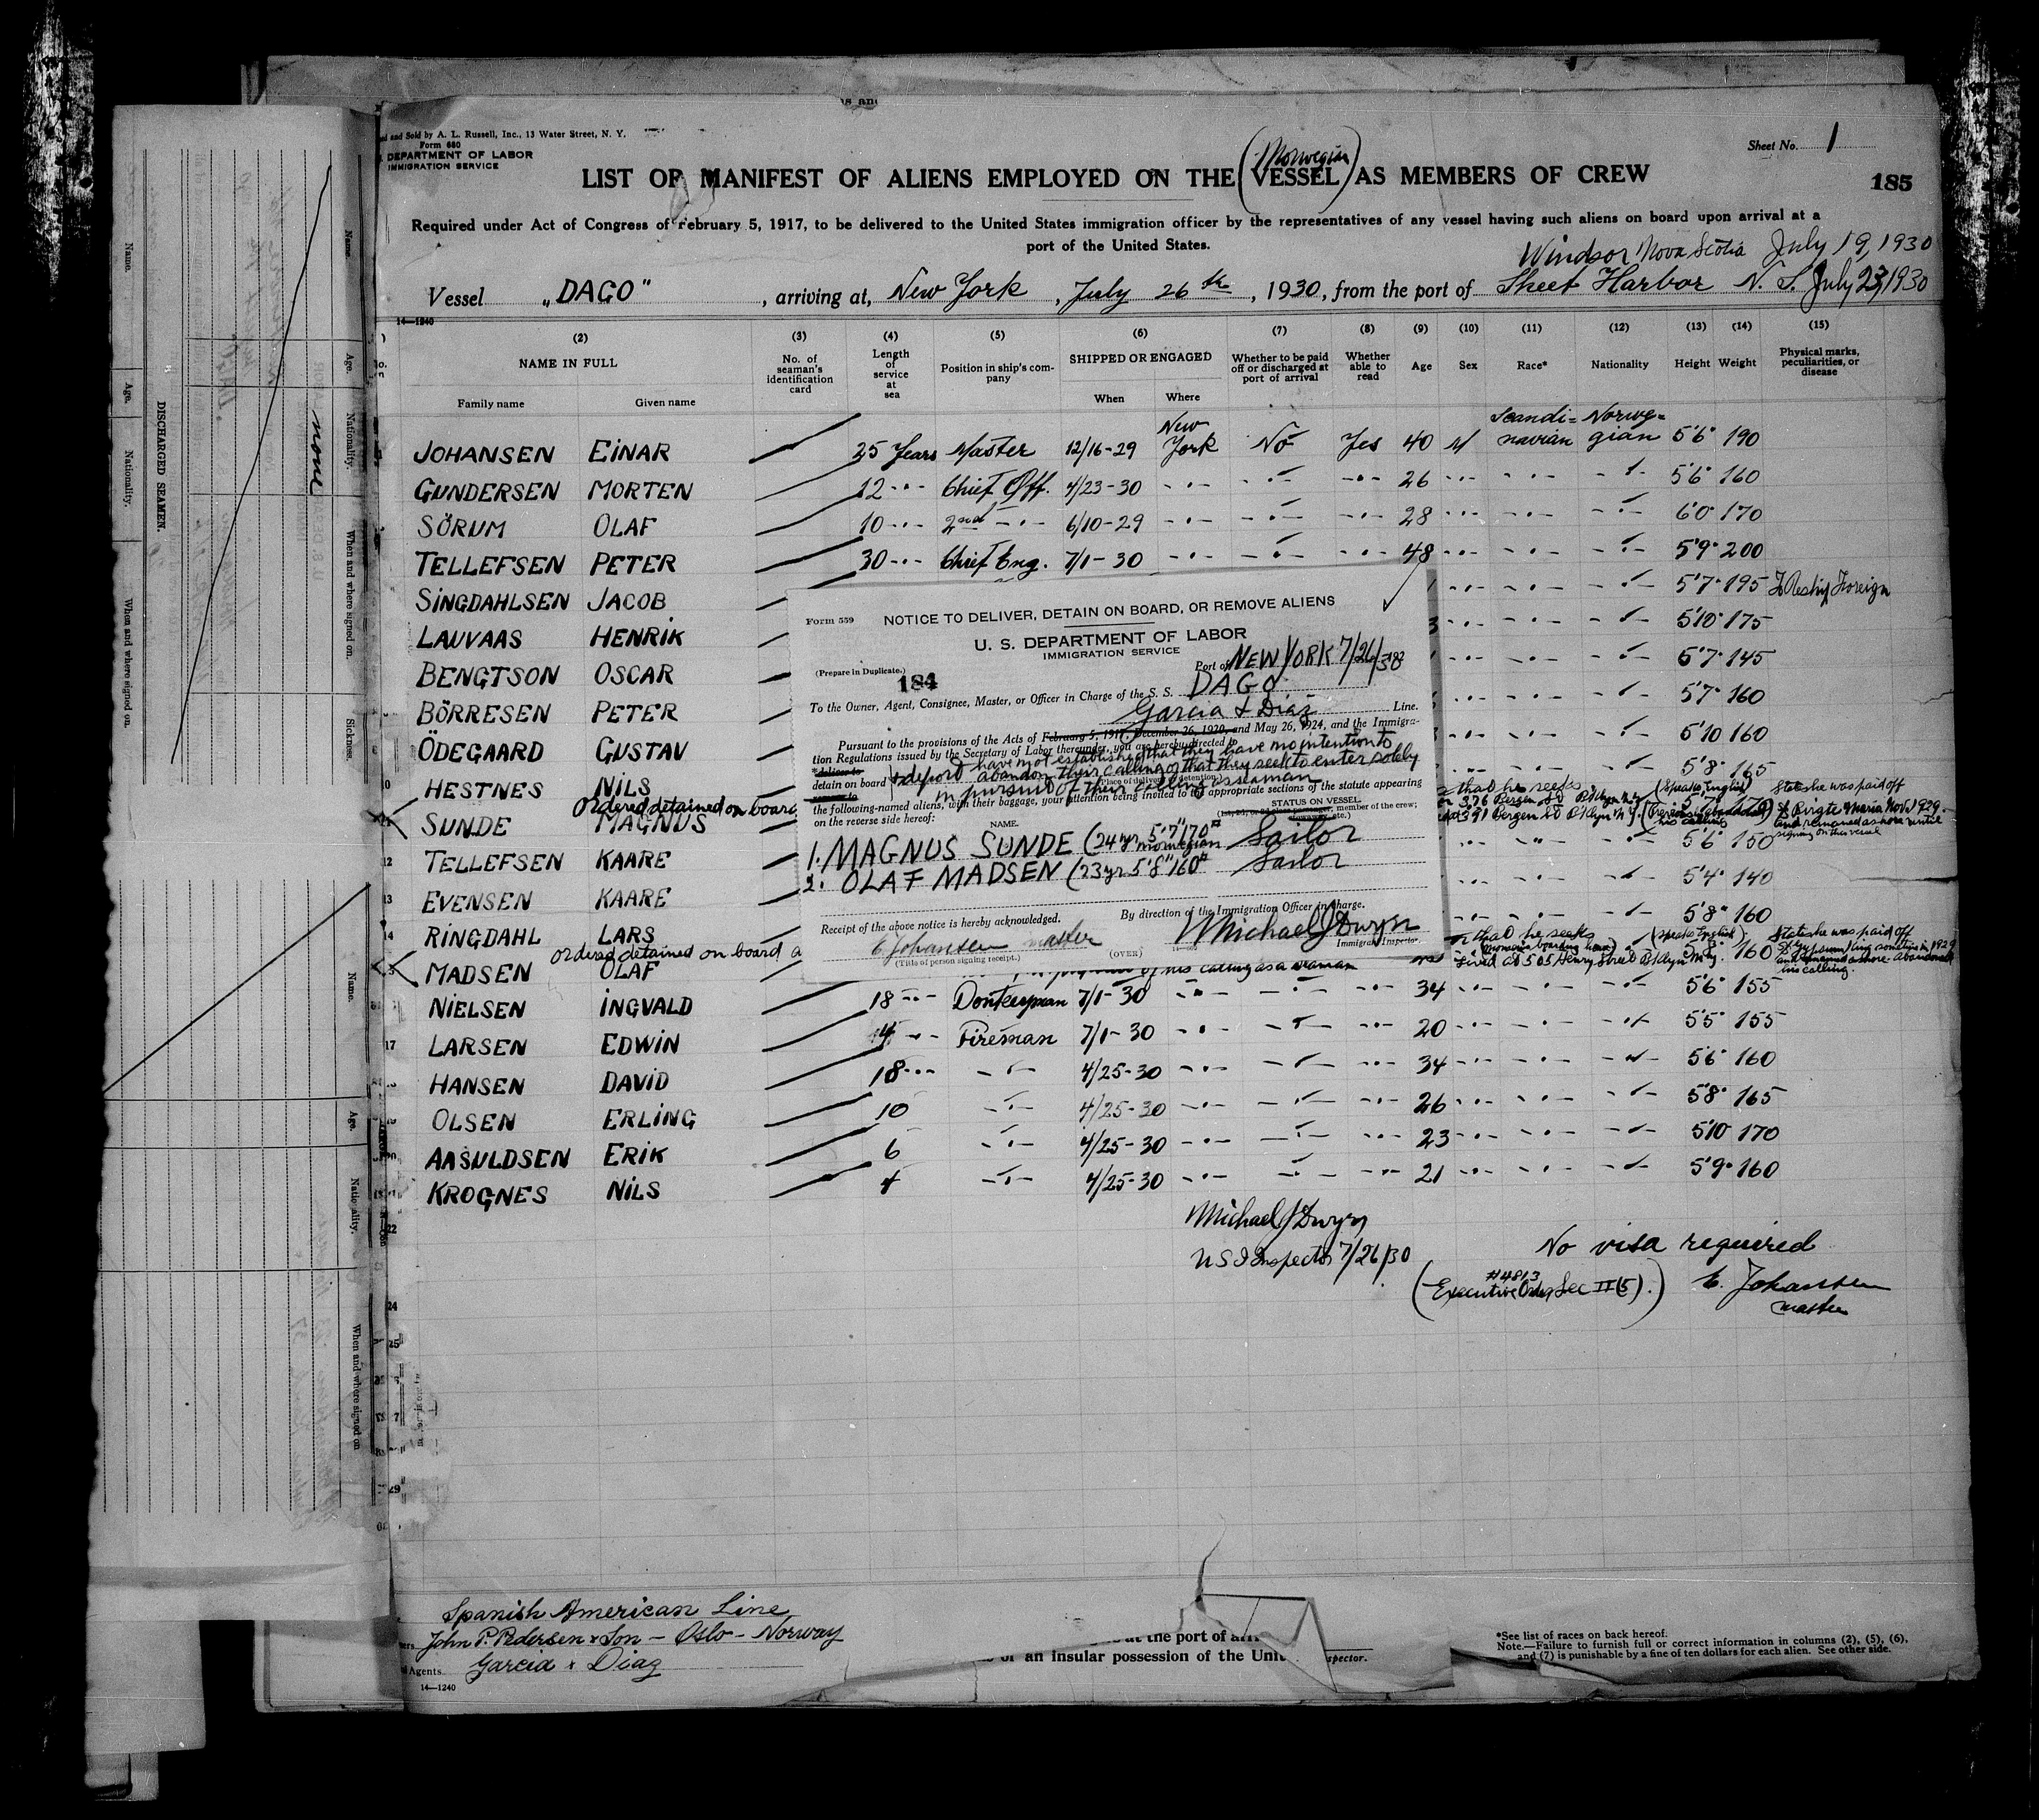 and Sold by A. L. Russell, Inc., 13 Water Street, N. Y.
Form 680
DEPARTMENT OF LABOR
IMMIGRATION SERVICE
Sheet No. 1
185
(Norwegian)
LIST OR MANIFEST OF ALIENS EMPLOYED ON THE VESSEL AS MEMBERS OF CREW
Required under Act of Congress of February 5, 1917, to be delivered to the United States immigration officer by the representatives of any vessel having such aliens on board upon arrival at a
port of the United States.
Windsor Nova Scotia July 19, 1930
Vessel "DAGO", arriving at, New York, July 26th, 1930, from the port of Sheet Harbor N. S. July 23, 1930
14—1240
(2) (3) (4) (5) (6) (7) (8) (9) (10) (11) (12) (13) (14) (15)
NAME IN FULL
Family name Given name
No. of seaman's identification card
Length of service at sea
Position in ship's company
SHIPPED OR ENGAGED
When Where
Whether to be paid off or discharged at port of arrival
Whether able to read
Age Sex Race* Nationality Height Weight
Physical marks, peculiarities, or disease
JOHANSEN EINAR 25 Years Master 12/16-29 New York No Yes 40 M Scandi=navian Norwe=gian 5'6" 190
GUNDERSEN MORTEN 12 Chief Off. 4/23-30 26 5'6" 160
SÖRUM OLAF 10 2nd 6/10-29 28 6'0" 170
TELLEFSEN PETER 30 Chief Eng. 7/1-30 48 5'9" 200
SINGDAHLSEN JACOB 5'7" 195 To Reship Foreign
LAUVAAS HENRIK 5'10" 175
BENGTSON OSCAR 5'7" 145
BÖRRESEN PETER 5'7" 160
ÖDEGAARD GUSTAV 5'10 160
HESTNES NILS 5'8" 165
Ordered detained on board
that he seeks
376 Bergen St B'klyn N.Y. (Speaks English) States he was paid off
391 Bergen St B'klyn N.Y.
and remained ashore until
signing on this vessel
SUNDE MAGNUS
12 TELLEFSEN KAARE 5'6" 150
13 EVENSEN KAARE 5'4" 140
14 RINGDAHL LARS 5'8" 160
ordered detained on board
that he seeks (Speaks English) States he was paid off
Lived at 505 Henry Street B'klyn N.Y.
and remained ashore abandoned
his calling.
MADSEN OLAF 5'8" 160
of his calling as a seaman
NIELSEN INGVALD 18 Donkeyman 7/1-30 34 5'6" 155
17 LARSEN EDWIN Fireman 7/1-30 20 5'5" 155
HANSEN DAVID 18 4/25-30 34 5'6" 160
OLSEN ERLING 10 4/25-30 26 5'8" 165
AASULDSEN ERIK 6 4/25-30 23 5'10 170
KROGNES NILS 4 4/25-30 21 5'9" 160
22
24
25
29
Michael J Dwyer
U S I Inspector 7/26/30
No visa required
(#4813 Executive Order Sec II (5).)
E. Johansen
master
Form 559
NOTICE TO DELIVER, DETAIN ON BOARD, OR REMOVE ALIENS
U. S. DEPARTMENT OF LABOR
IMMIGRATION SERVICE
(Prepare in Duplicate.)
Port of NEW YORK 7/26/30
184
To the Owner, Agent, Consignee, Master, or Officer in Charge of the S. S. DAGO
Garcia & Diaz Line.
Pursuant to the provisions of the Acts of February 5 1917, December 26, 1920, and May 26, 1924, and the Immigra-
tion Regulations issued by the Secretary of Labor thereunder, you are hereby directed to
*deliver to
detain on board & deport have not established that they have no intention to
abandon their calling or that they seek to enter solely
in pursuit of their calling as seaman
(Place of delivery or detention.)
the following-named aliens, with their baggage, your attention being invited to the appropriate sections of the statute appearing
on the reverse side hereof:
NAME.
STATUS ON VESSEL
member of the crew;
1. MAGNUS SUNDE (24 yr 5'7" 170# Norwegian Sailor
2. OLAF MADSEN (23 yr 5'8" 160# Sailor
By direction of the Immigration Officer in Charge.
Receipt of the above notice is hereby acknowledged.
E Johansen master
(Title of person signing receipt.)
(OVER)
Michael J Dwyer
Immigrant Inspector
Spanish American Line
John P. Pedersen & Son - Oslo - Norway
Agents Garcia & Diaz
14—1240
at the port of
or an insular possession of the
*See list of races on back hereof.
Note.—Failure to furnish full or correct information in columns (2), (5), (6),
and (7) is punishable by a fine of ten dollars for each alien. See other side.
DISCHARGED SEAMEN.
Name.
Age.
Nationality.
When and where signed on.
Sickness.
none
Name.
Age.
Nationality.
Whom and where signed on.
Name.
Age.
Nationality.
When and where signed on